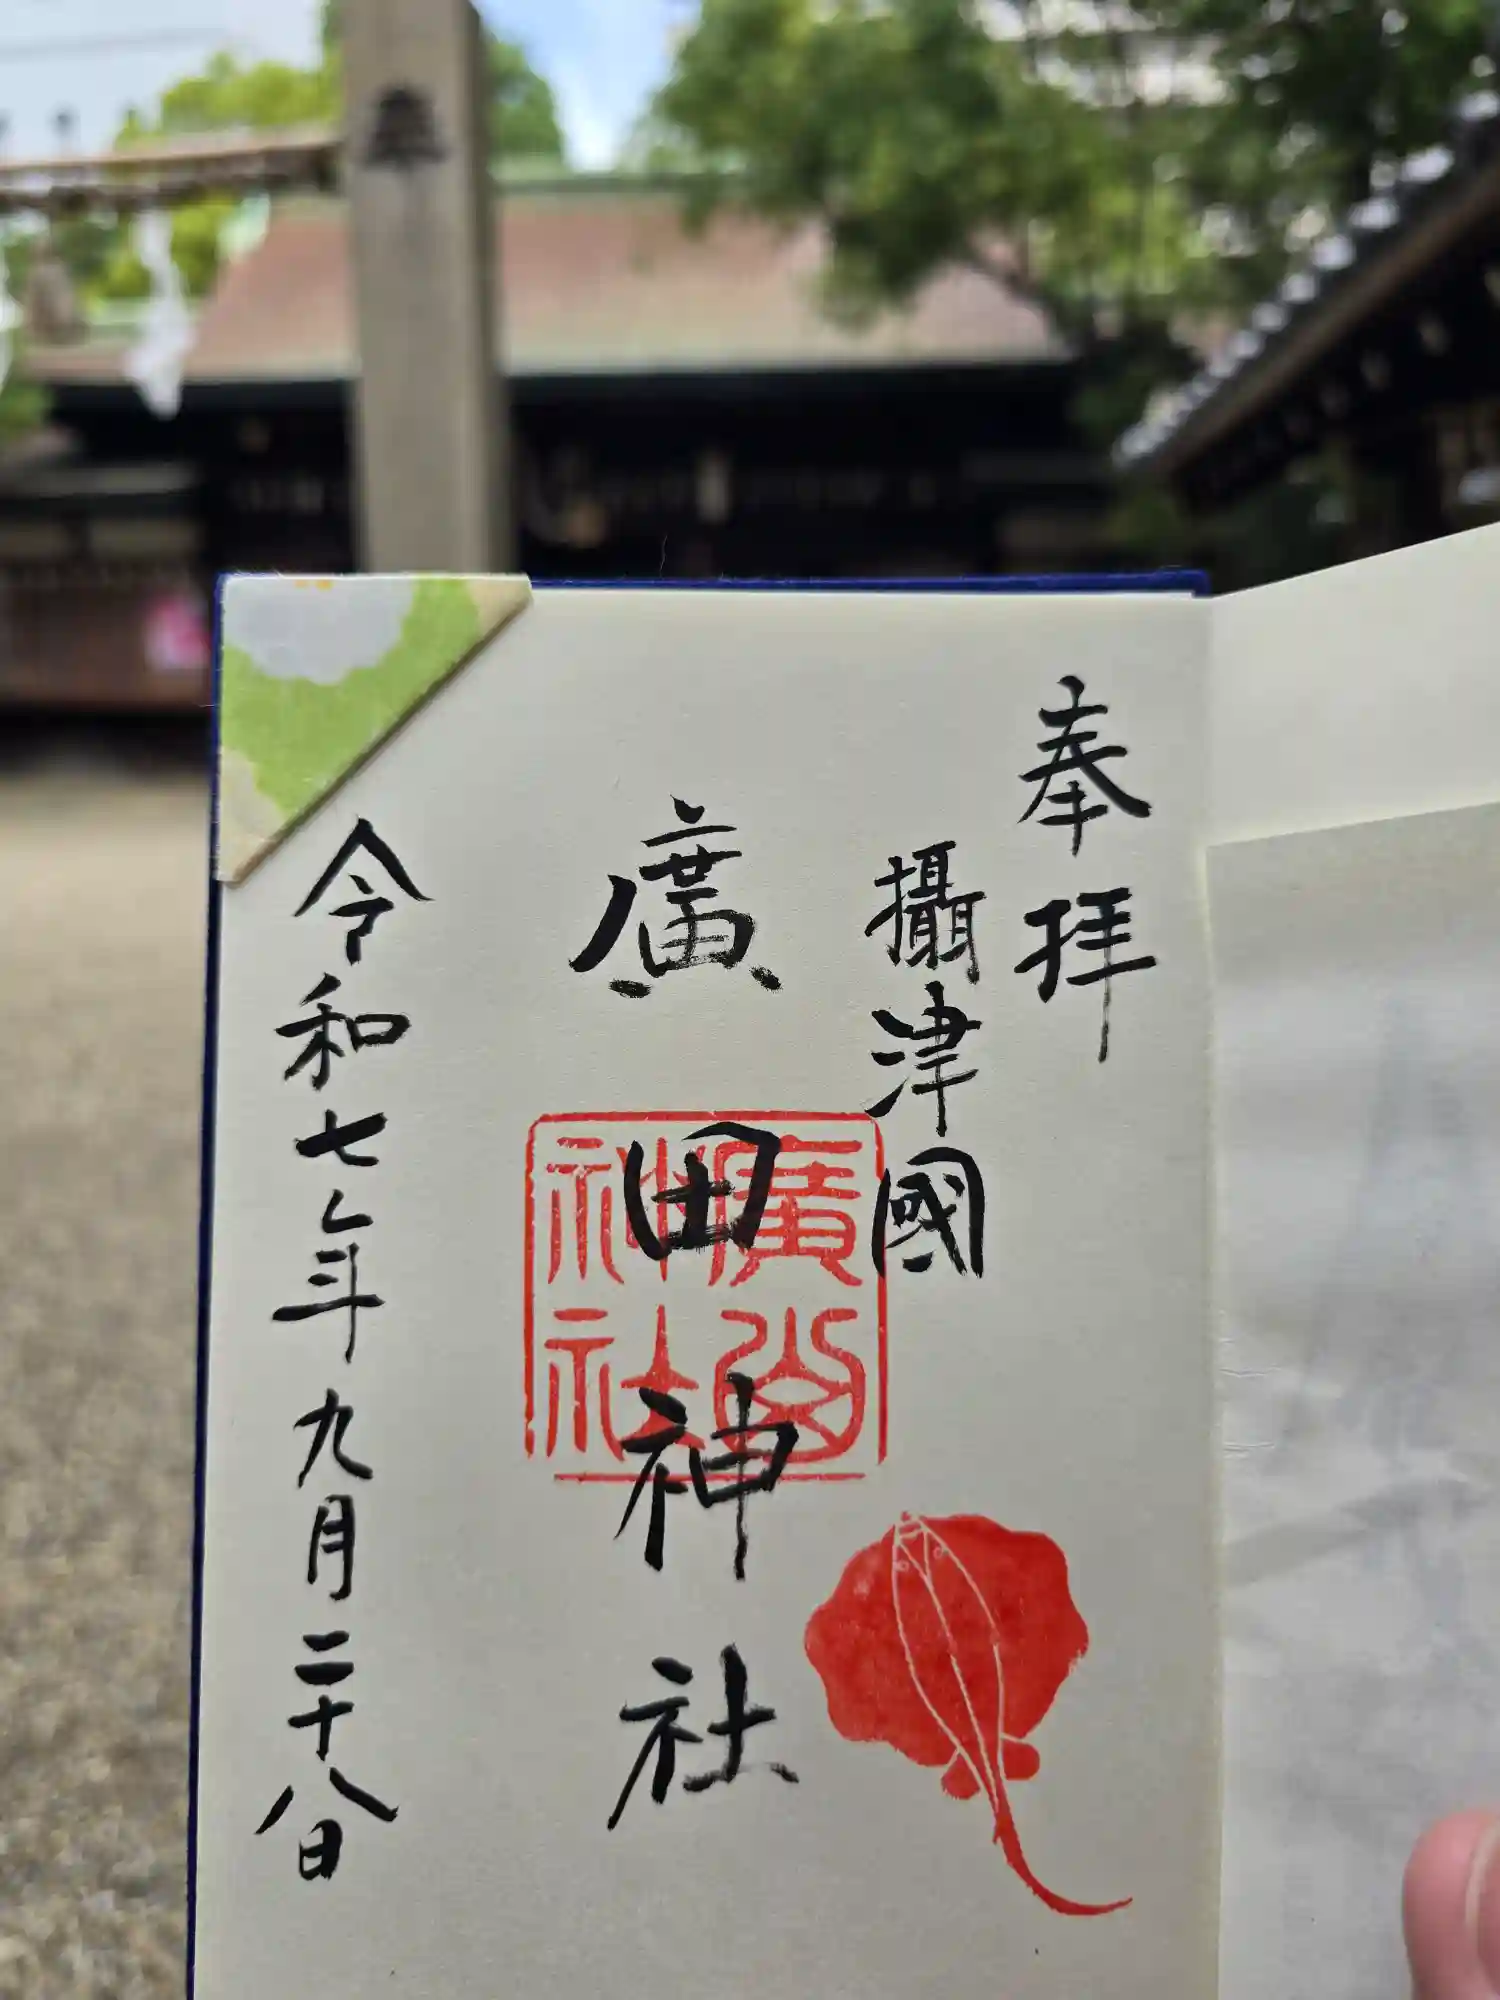 奉拝
攝津國
廣田神社
廣田神社
令和七年九月二十八日
奉